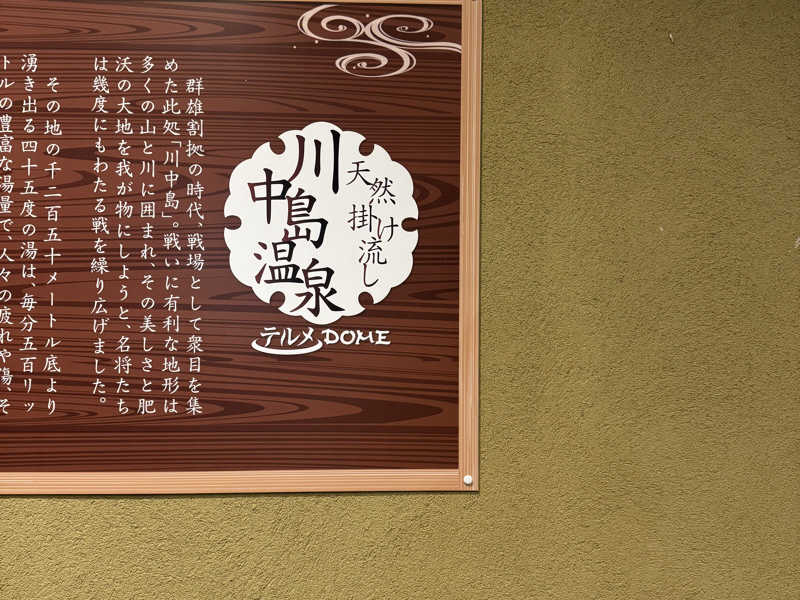 天然
掛け流し
川中島
温泉
テルメDOME
群雄割拠の時代、戦場として衆目を集
めた此処「川中島」。戦いに有利な地形は
多くの山と川に囲まれ、その美しさと肥
沃の大地を我が物にしようと、名将たち
は幾度にもわたる戦を繰り広げました。
その地の千二百五十メートル底より
湧き出る四十五度の湯は、毎分五百リッ
トルの豊富な湯量で、人々の疲れや傷、そ